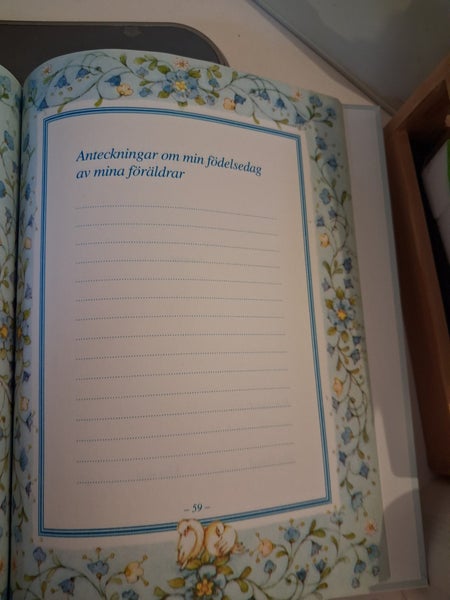 Anteckningar om min födelsedag
av mina föräldrar
– 59 –